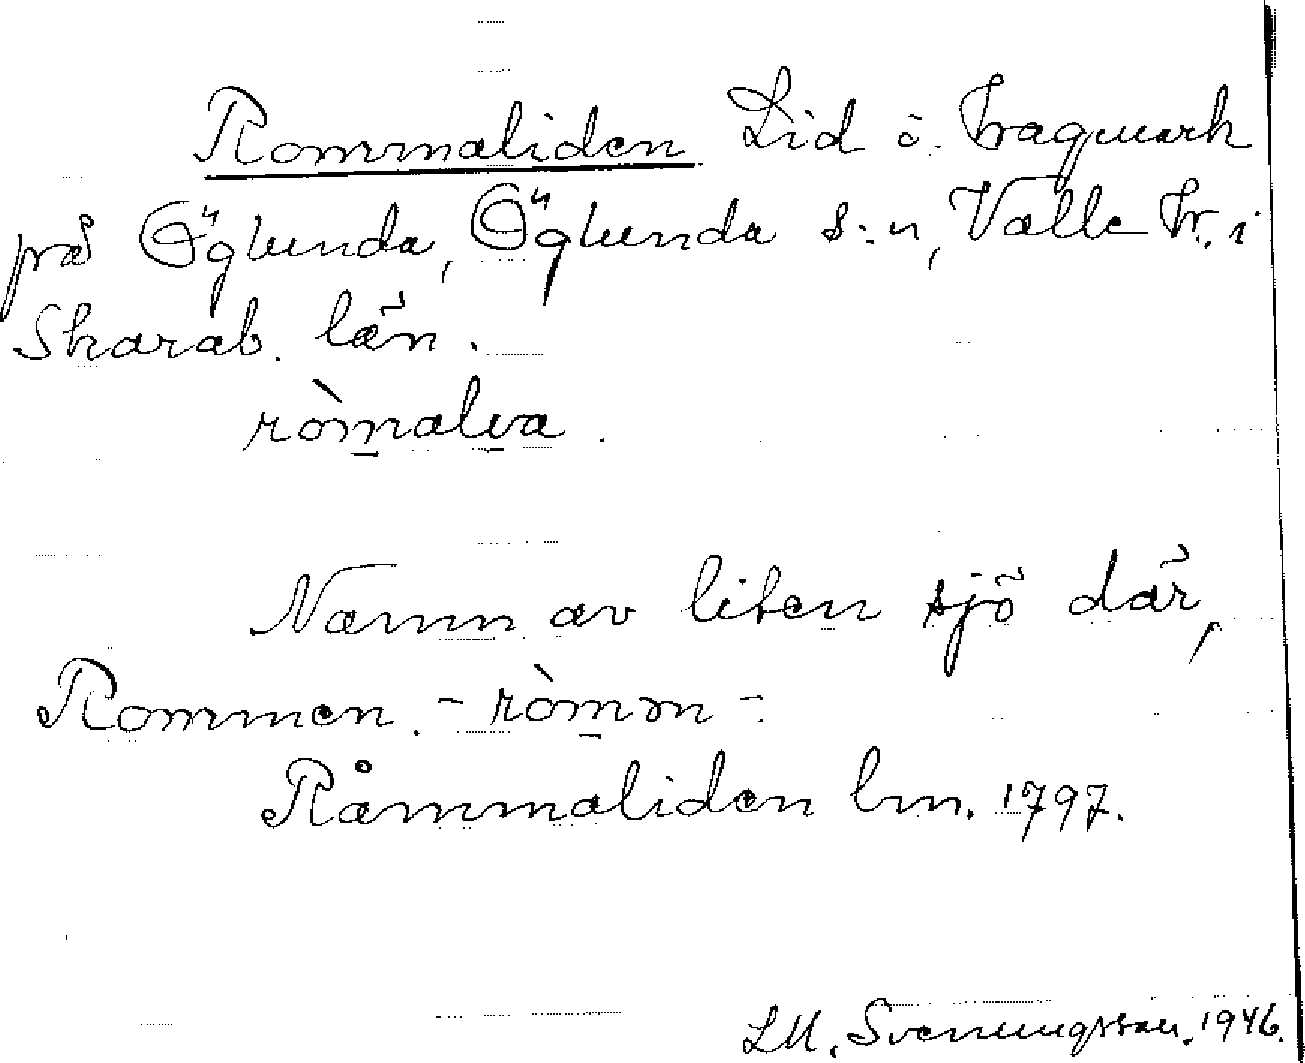 Rommaliden. Lid å Hagmark
på Öglunda, Öglunda s:n, Valle hr. i
Skarab. län.
ròmalva.
Namn av liten sjö där,
Rommen. - ròmən -.
Råmmaliden lm. 1797.
LM. Svenungsson. 1946.